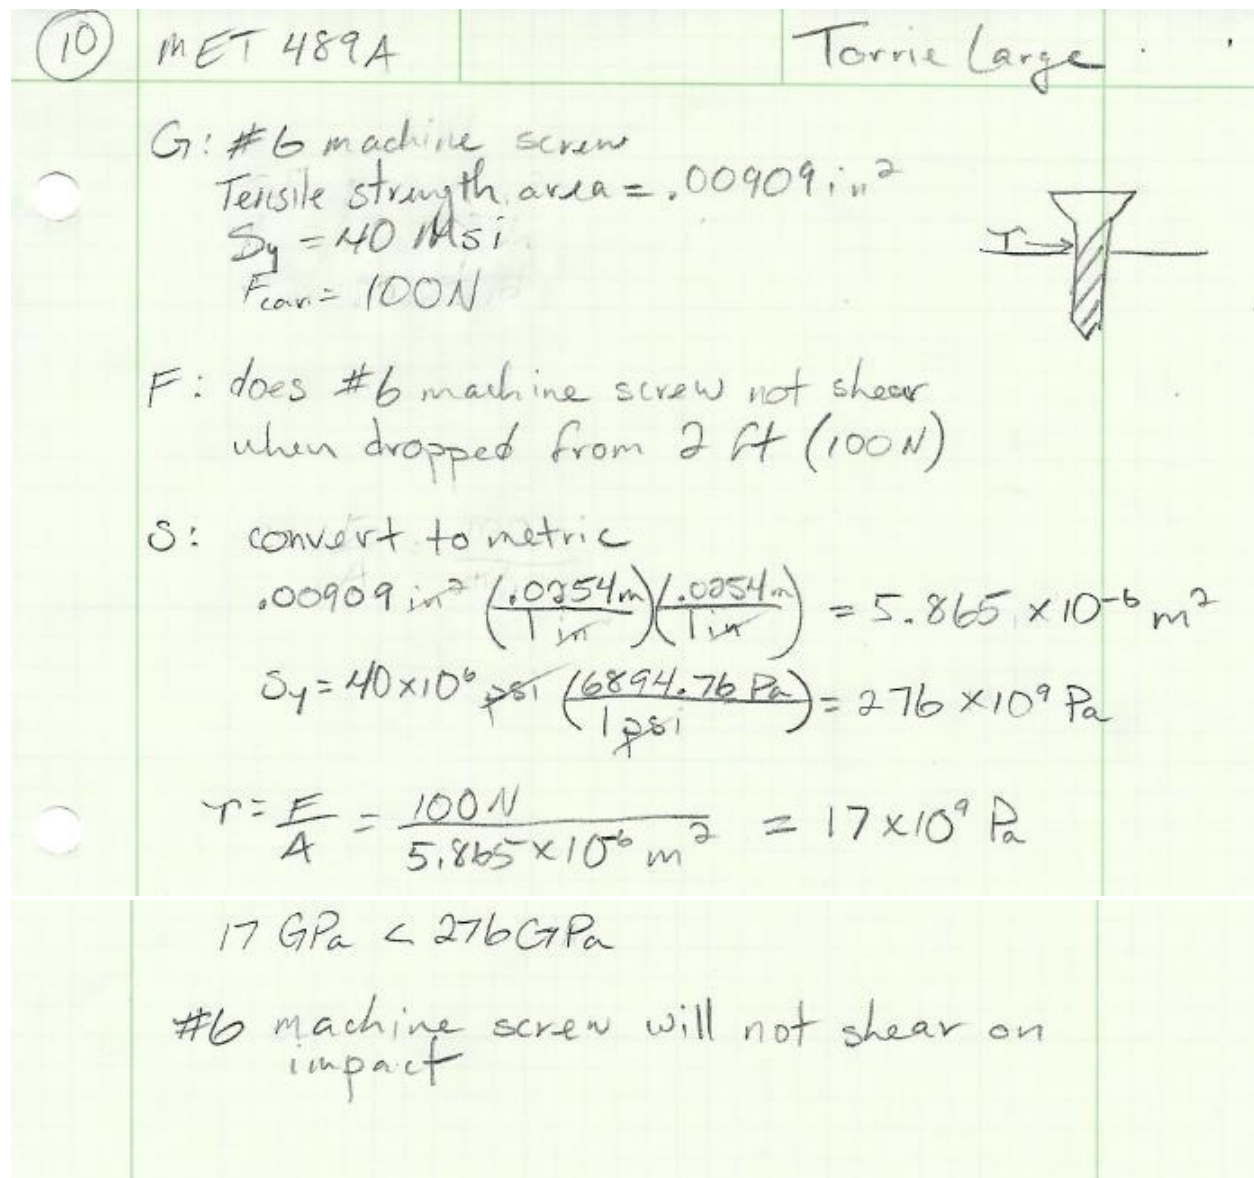 10 MET 489A Torrie Large
G: #6 machine screw
Tensile strength area = .00909 in²
Sy = 40 Msi
τ→
Fcar = 100N
F: does #6 machine screw not shear
when dropped from 2 ft (100N)
S: convert to metric
.00909 in² (.0254m/1in)(.0254m/1in) = 5.865 × 10⁻⁶ m²
Sy = 40×10⁶ psi (6894.76 Pa/1psi) = 276 ×10⁹ Pa
τ = F/A = 100N/5.865×10⁻⁶ m² = 17×10⁹ Pa
17 GPa < 276 GPa
#6 machine screw will not shear on
impact